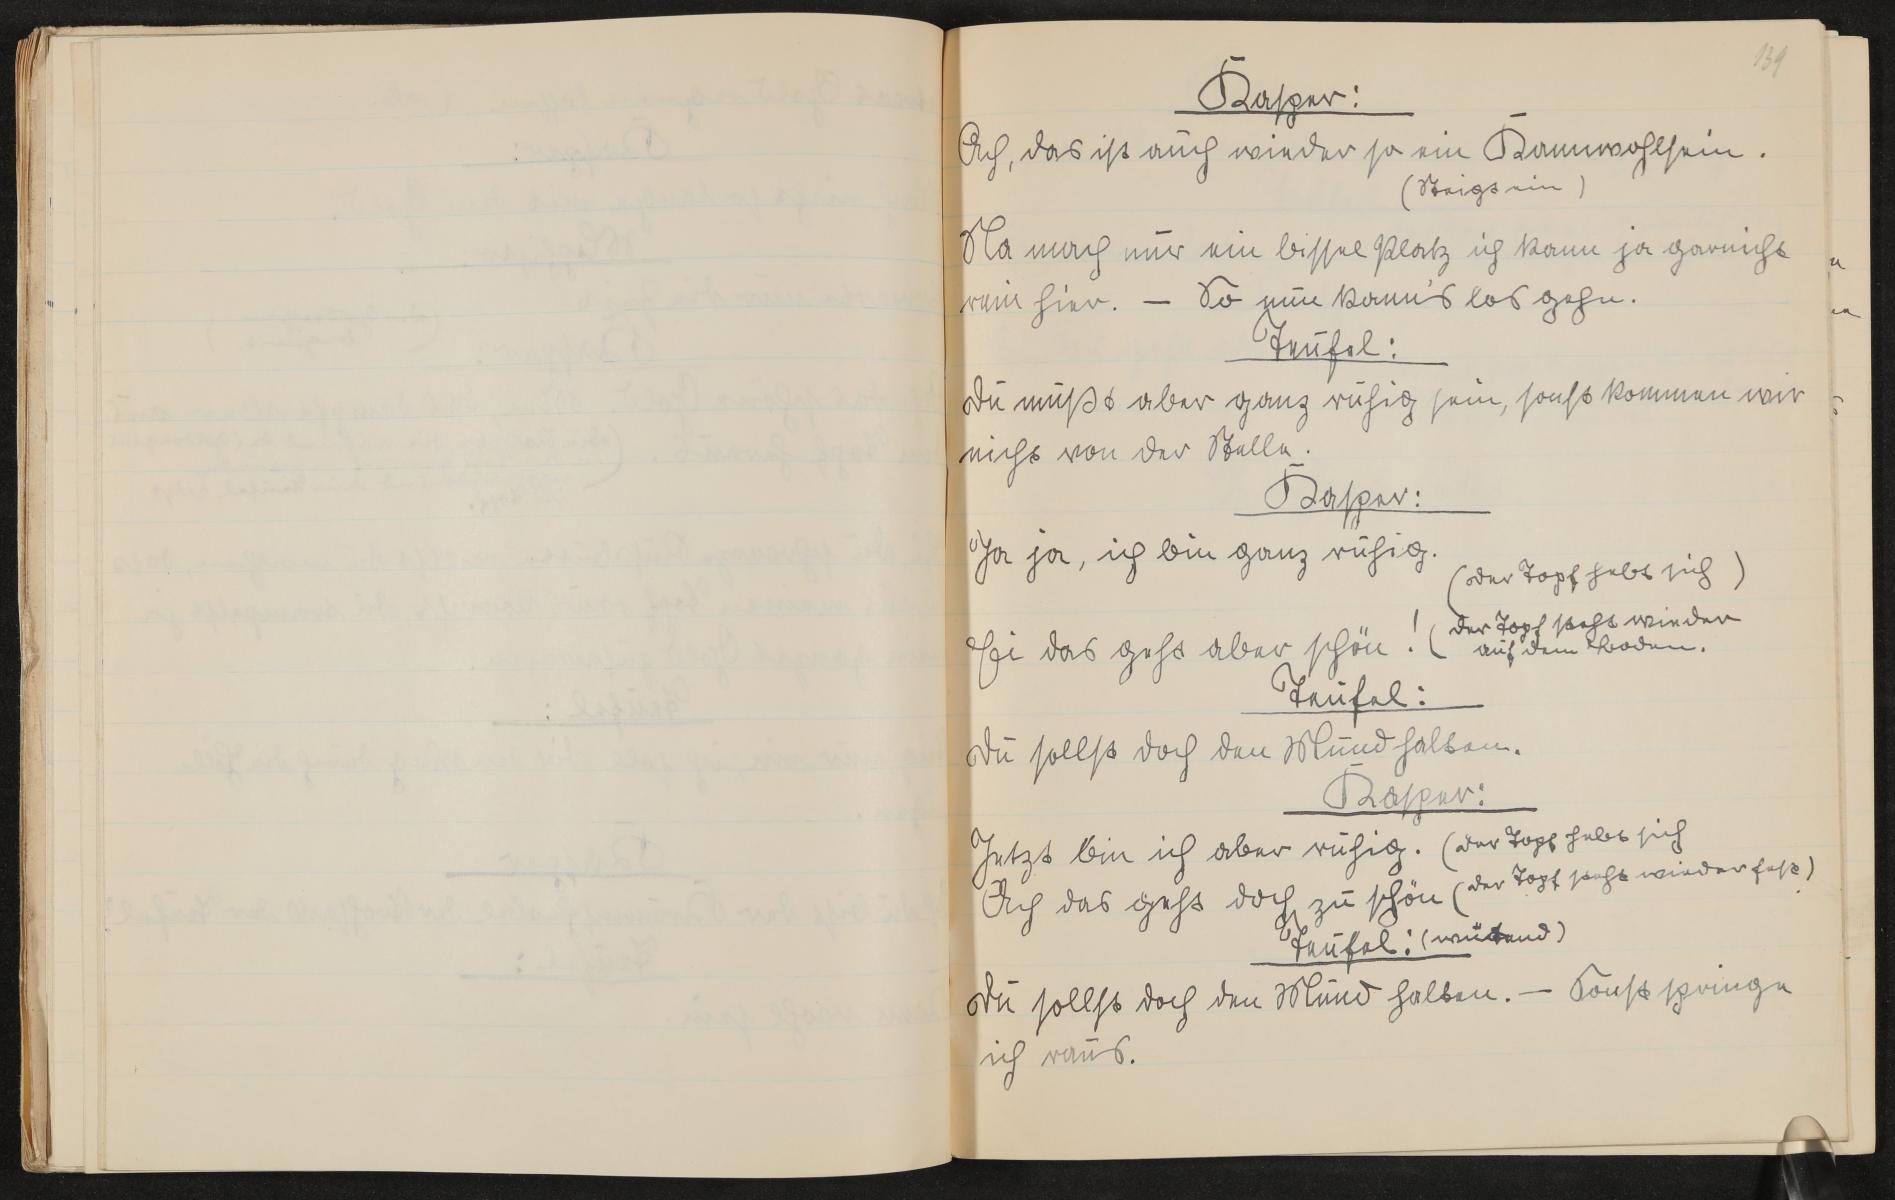 139
Kasper:
Ach, das ist auch wieder so ein Kannwohlsein.
(Steigt ein)
Na mach nur ein bissel Platz ich kann ja garnicht
rein hier. — So nun kann's los gehn.
Teufel:
Du mußt aber ganz ruhig sein, sonst kommen wir
nicht von der Stelle.
Kasper:
Ja ja, ich bin ganz ruhig.
(der Topf hebt sich)
Ei das geht aber schön! (der Topf steht wieder
auf dem Boden.
Teufel:
Du sollst doch den Mund halten.
Kasper:
Jetzt bin ich aber ruhig. (der Topf hebt sich
Ach das geht doch zu schön (der Topf steht wieder fest)
Teufel: (wütend)
Du sollst doch den Mund halten. — Sonst springe
ich raus.